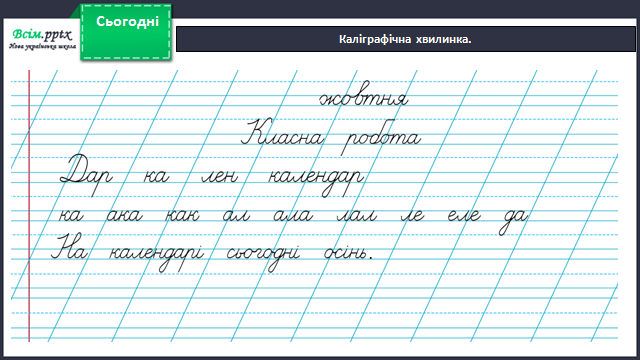 Всім.pptx
Нова українська школа
Сьогодні
Каліграфічна хвилинка.
жовтня
Класна робота
Дар ка лен календар
ка ака как ал ала лал ле еле да
На календарі сьогодні осінь.